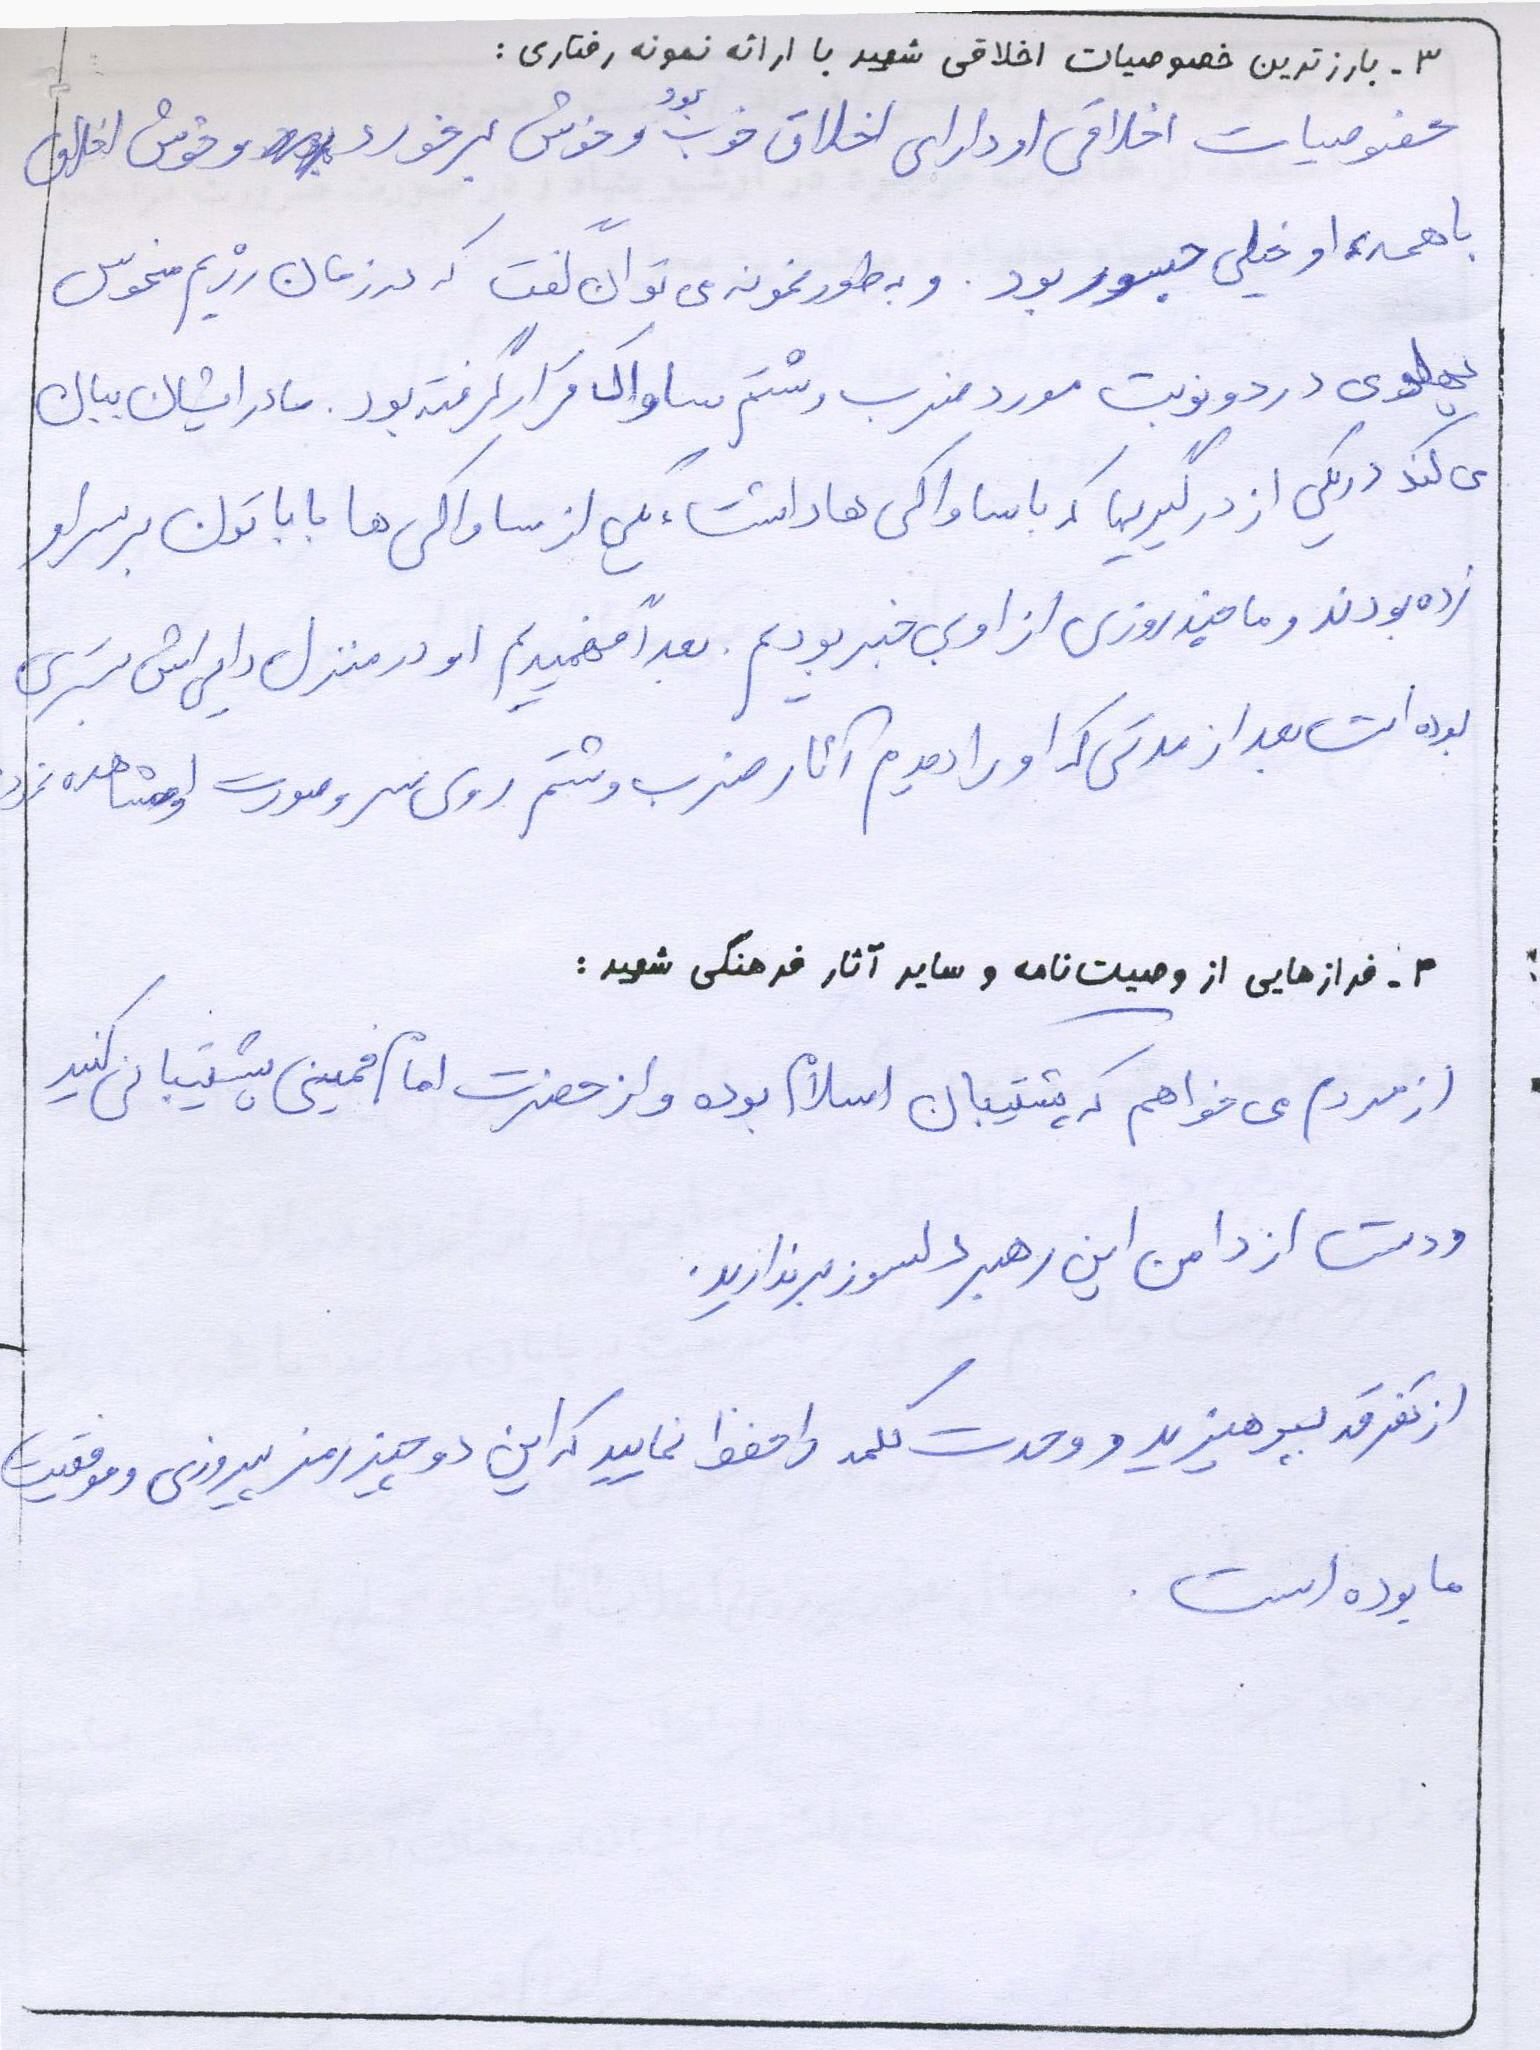 ۳ـ بارزترین خصوصیات اخلاقی شهید با ارائه نمونه رفتاری:
خصوصیات اخلاقی او دارای اخلاق خوب بود و خوش برخورد و خوش اخلاق
با همه، او خیلی جسور بود. و به طور نمونه می توان گفت که در زمان رژیم منحوس
پهلوی در دو نوبت مورد ضرب و شتم ساواک قرار گرفته بود. مادر ایشان بیان
می کند در یکی از درگیریها که با ساواکی ها داشت، یکی از ساواکی ها با باتون بر سر او
زده بودند و ما چند روزی از او بی خبر بودیم. بعداً فهمیدیم او در منزل دایی اش بستری
بوده است بعد از مدتی که او را دیدم آثار ضرب و شتم روی سر و صورت او مشاهده
۴ـ فرازهایی از وصیت‌نامه و سایر آثار فرهنگی شهید:
از مردم می خواهم که پشتیبان اسلام بوده و از حضرت امام خمینی پشتیبانی کنید
و دست از دامن این رهبر دلسوز برندارید.
از تفرقه بپرهیزید و وحدت کلمه را حفظ نمایید که این دو چیز رمز پیروزی و موفقیت
ما بوده است.